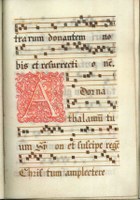 trarum donantem no
bis et resurrecti o né.
A Dorna
thalamũ tu
um Syon et suscipe regẽ
Christum amplectere